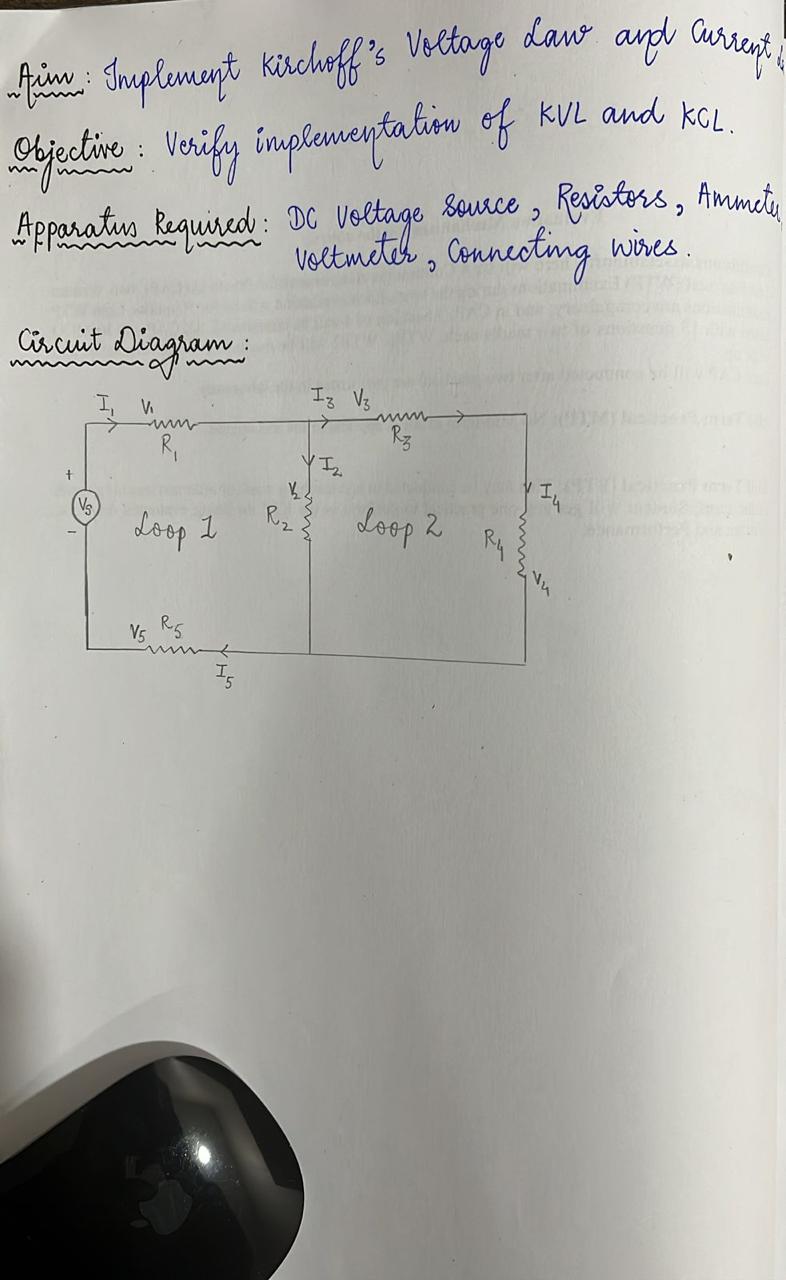 Aim : Implement Kirchoff's Voltage Law and Current
Objective : Verify implementation of KVL and KCL.
Apparatus Required : DC Voltage Source, Resistors, Ammete
Voltmeter, Connecting wires.
Circuit Diagram :
I1 V1 I3 V3
R1 R3
I2
+ V2 I4
Vs R2 R4
- Loop 1 Loop 2
V4
V5 R5
I5